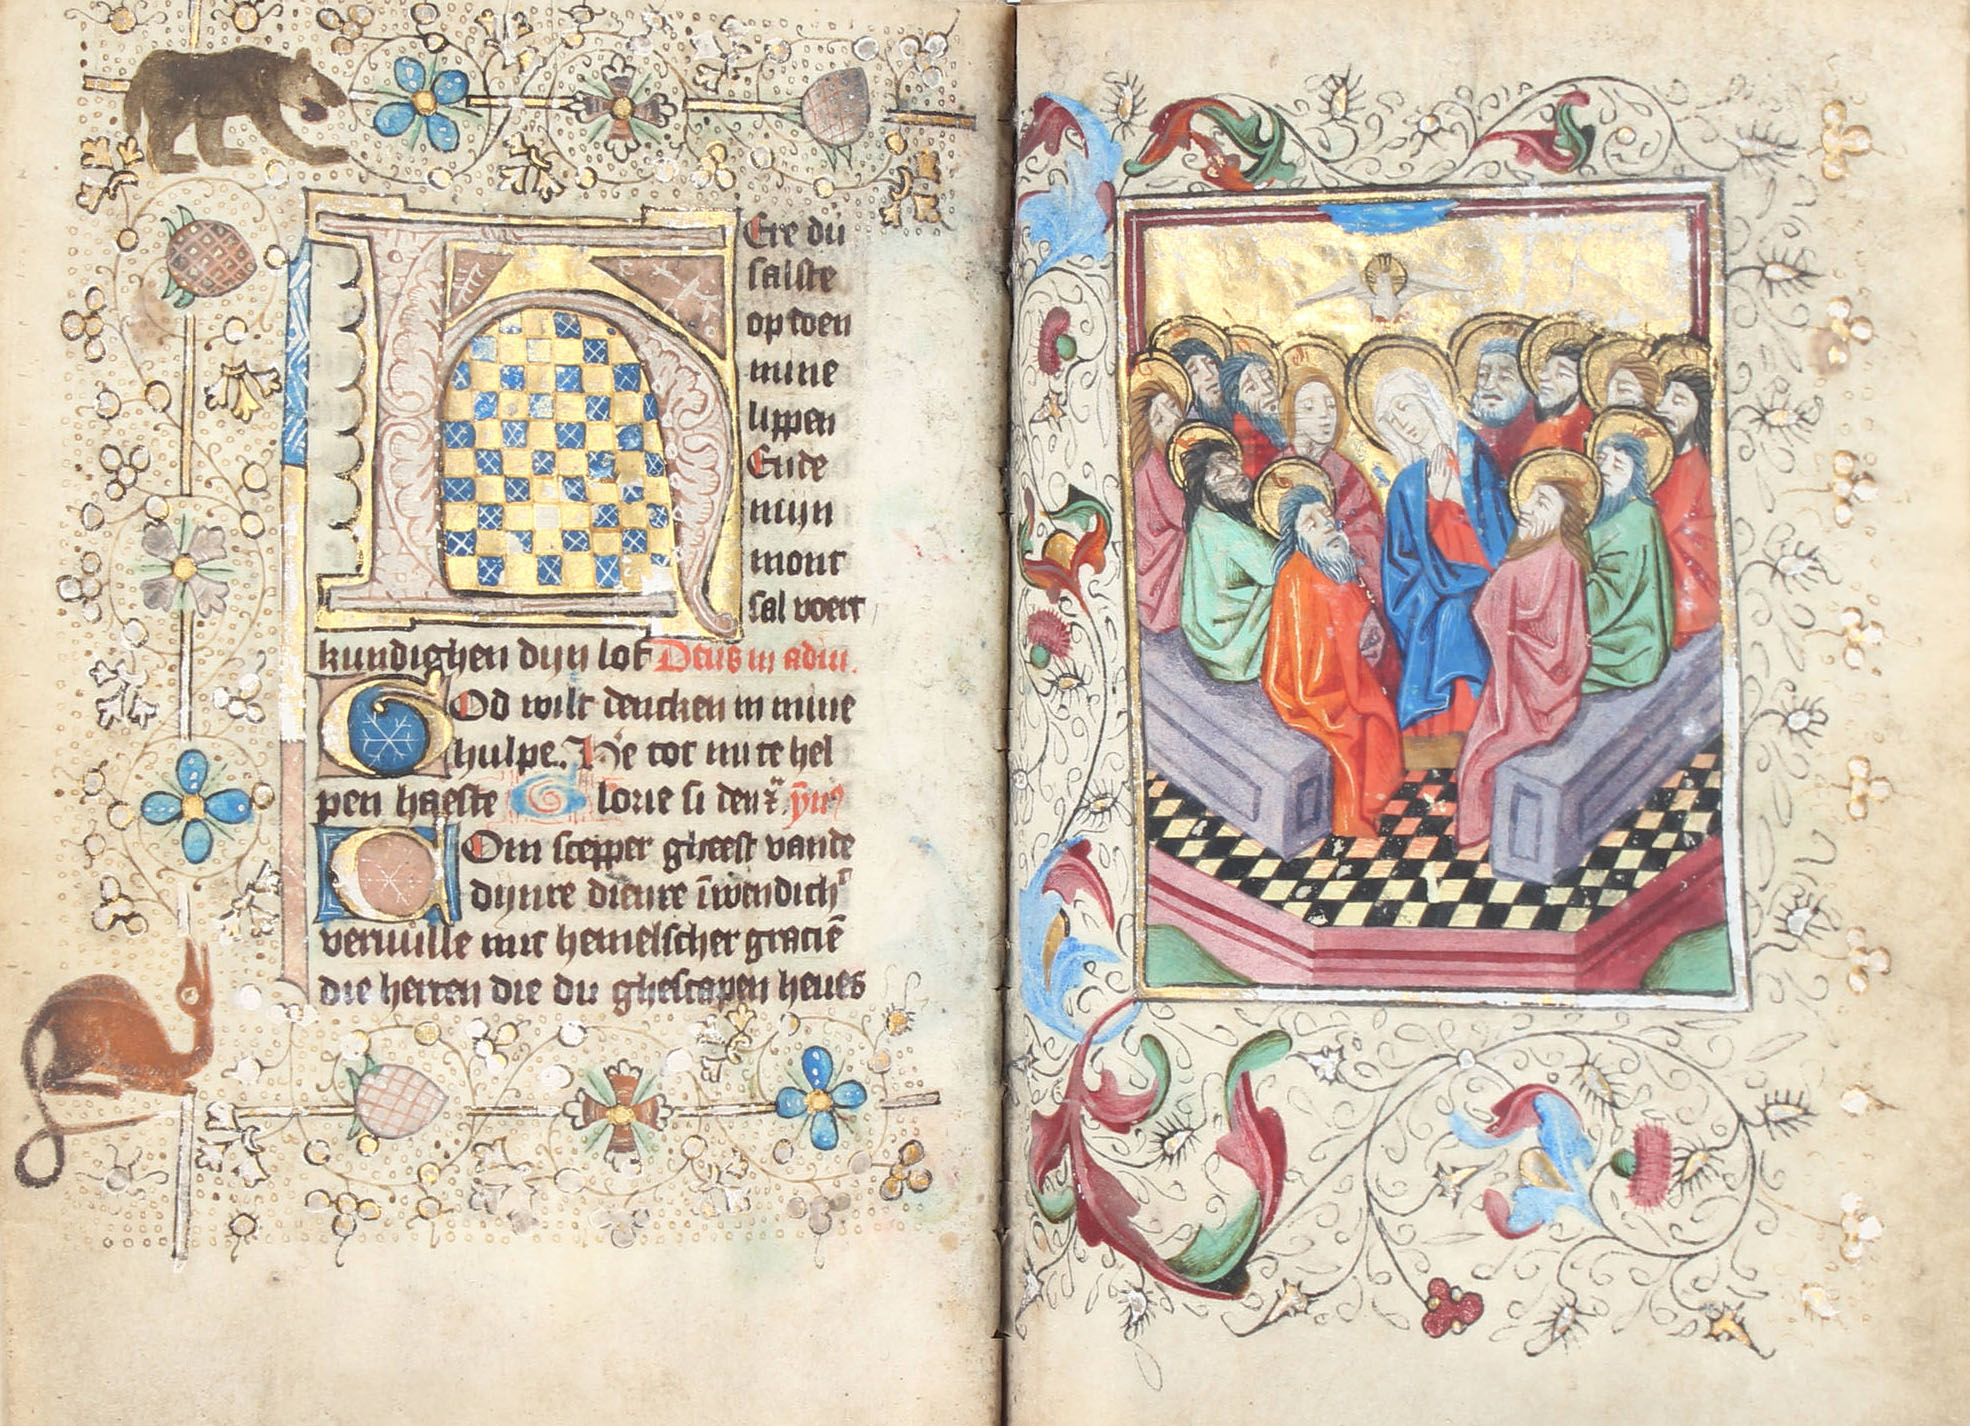 HEre du
salste
op doen
mine
lippen
Ende
mijn
mont
sal voert
kundighen dijn lof Deus in adiu.
GOd wilt dencken in mine
hulpe. He tot mi te hel
pen haeste Glorie si den
COm scepper gheest vande
dijnre dienre īwendich
vervulle mit hemelscher graciē
die herten die du ghescapen heves